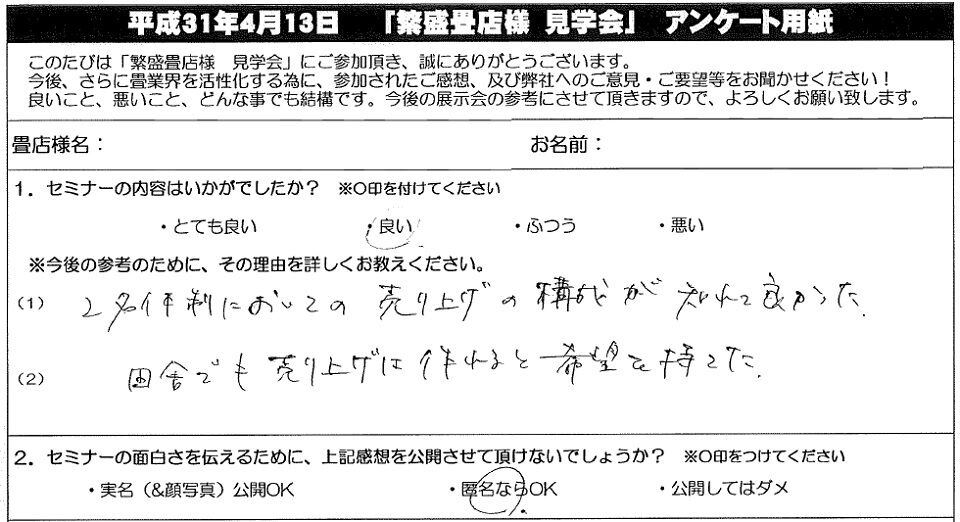 平成31年4月13日 「繁盛畳店様 見学会」 アンケート用紙
このたびは「繁盛畳店様 見学会」にご参加頂き、誠にありがとうございます。
今後、さらに畳業界を活性化する為に、参加されたご感想、及び弊社へのご意見・ご要望等をお聞かせください！
良いこと、悪いこと、どんな事でも結構です。今後の展示会の参考にさせて頂きますので、よろしくお願い致します。
畳店様名： お名前：
1．セミナーの内容はいかがでしたか？ ※〇印を付けてください
・とても良い ・良い ・ふつう ・悪い
※今後の参考のために、その理由を詳しくお教えください。
(1) 2名体制においての売り上げの構成が知れて良かった。
(2) 田舎でも売り上げは作れると希望を持てた。
2．セミナーの面白さを伝えるために、上記感想を公開させて頂けないでしょうか？ ※〇印をつけてください
・実名（&顔写真）公開OK ・匿名ならOK ・公開してはダメ